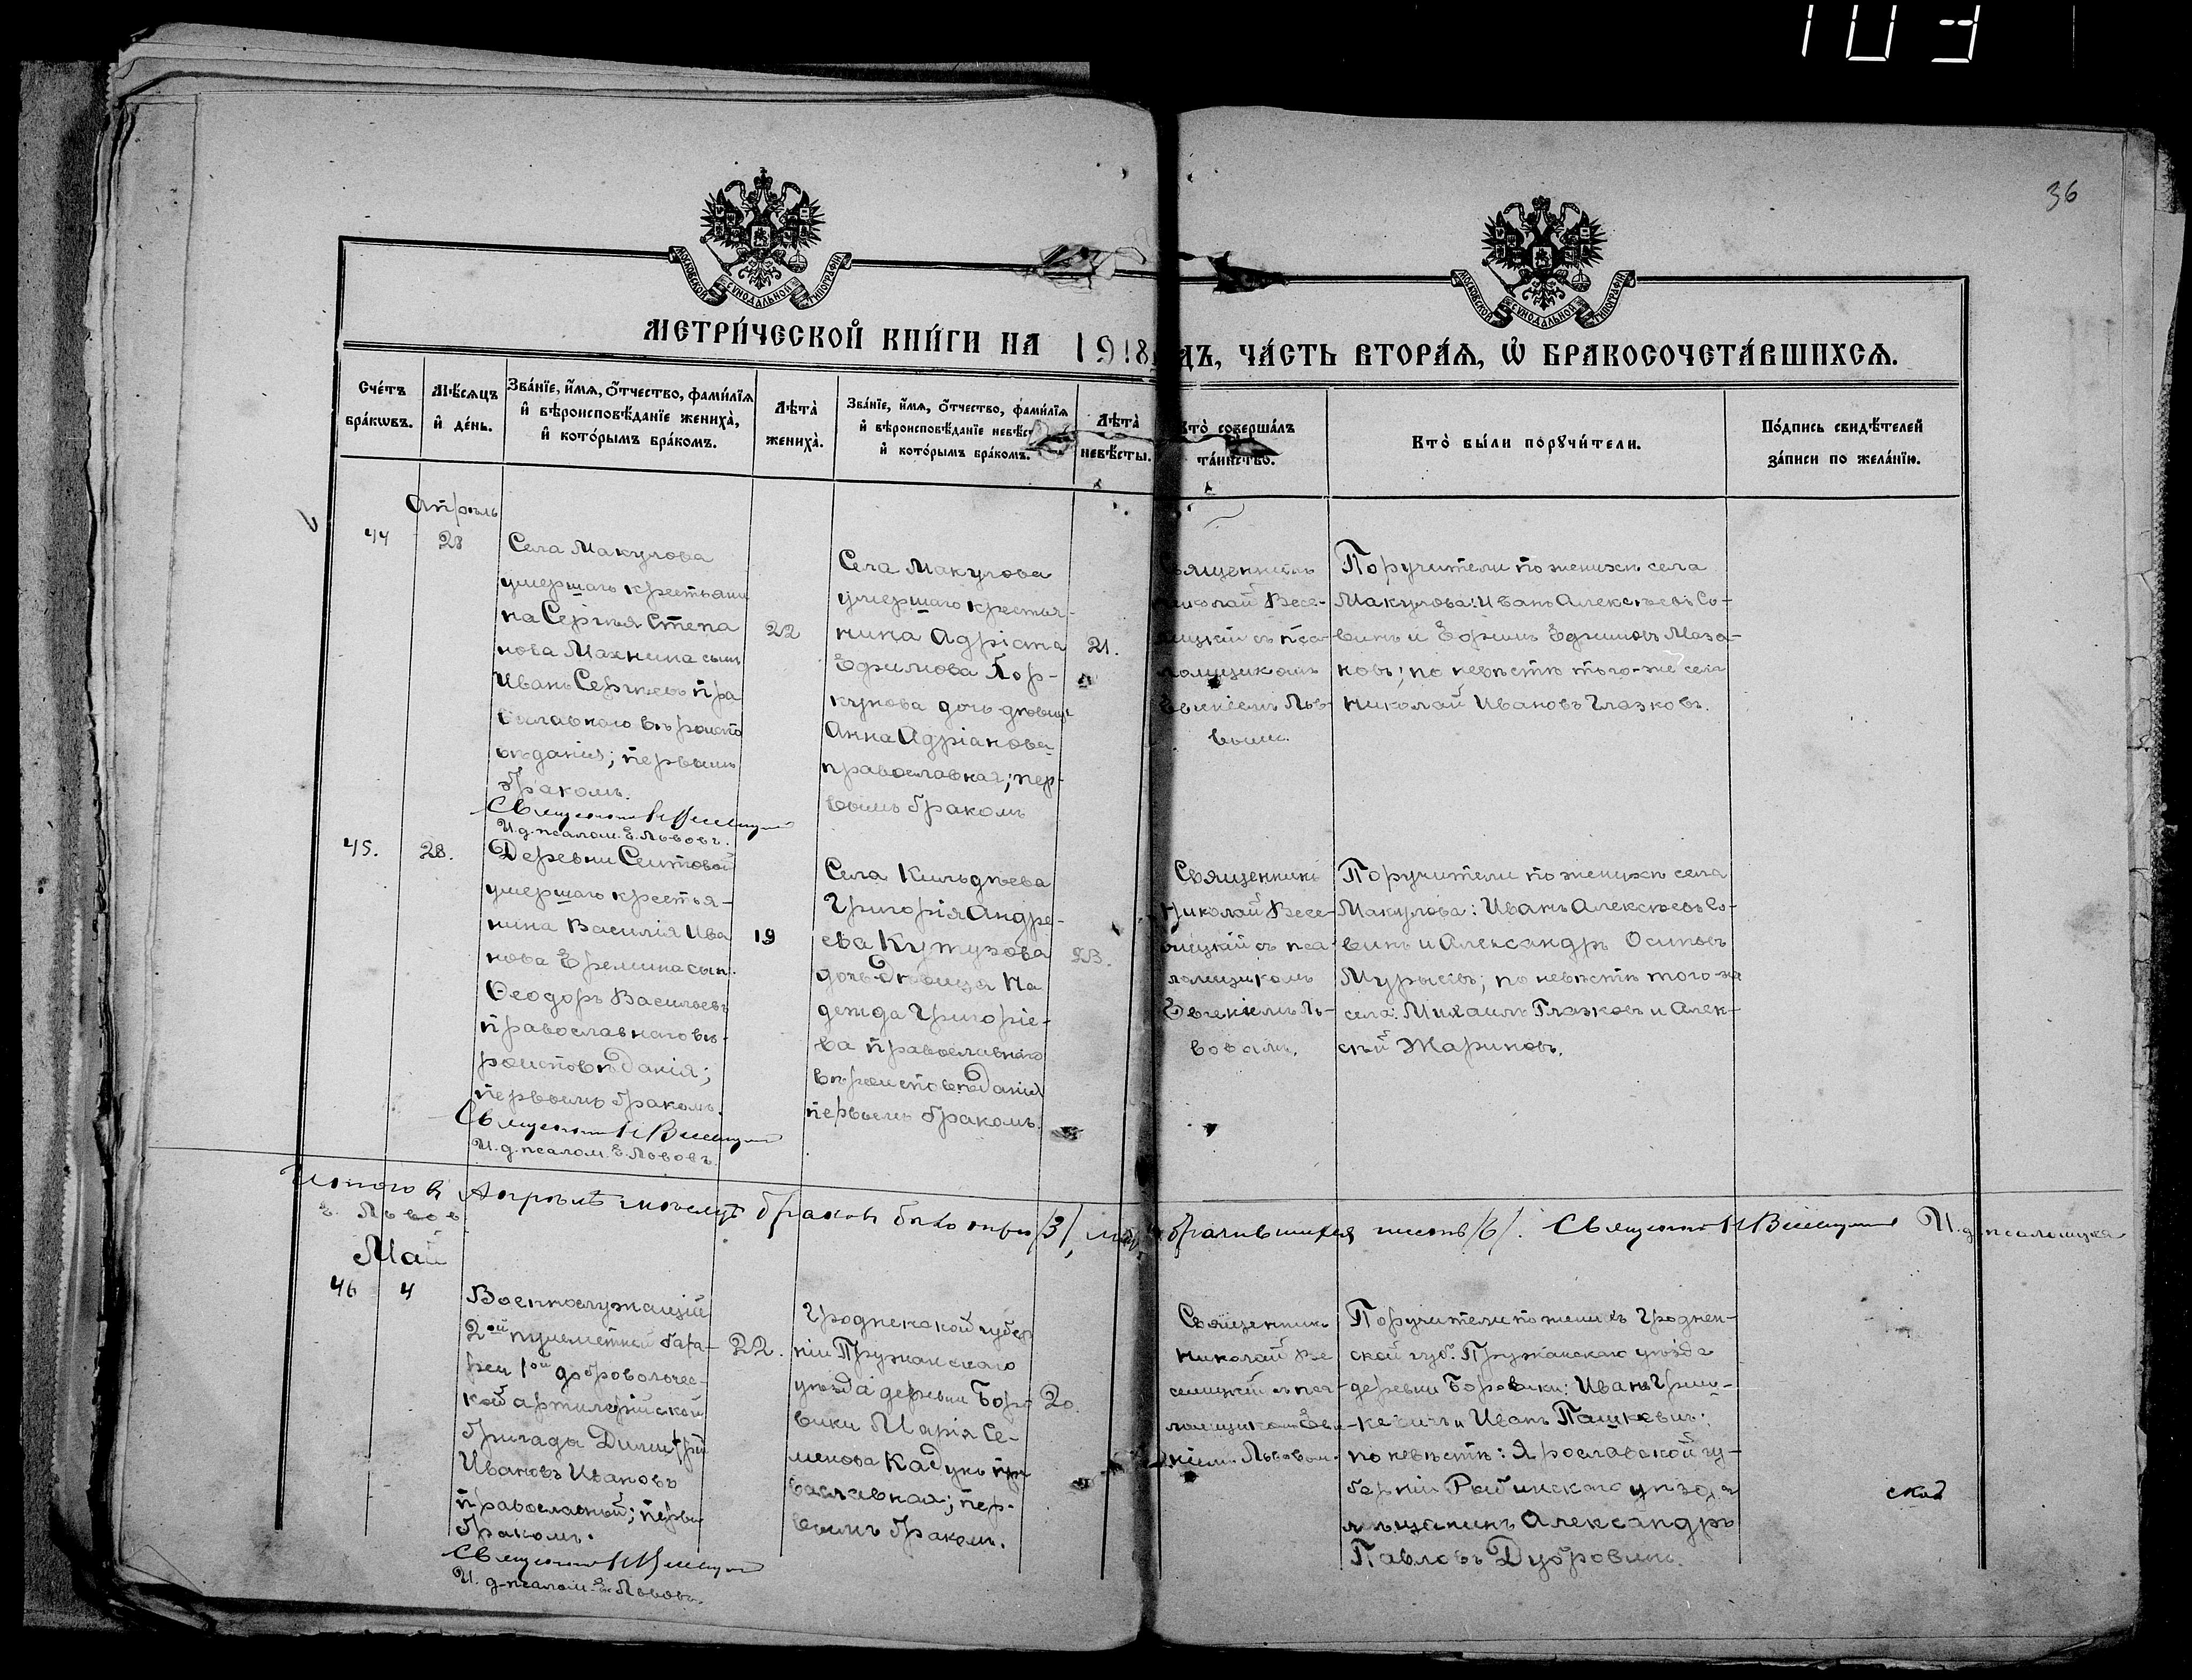 103
36
МОСКОВСКОЙ СУНОДАЛЬНОЙ ТИПОГРАФІИ
МОСКОВСКОЙ СУНОДАЛЬНОЙ ТИПОГРАФІИ
МЕТРИ́ЧЕСКОЙ КНИ́ГИ НА 1918 ДЪ, ЧА́СТЬ ВТОРА́Я, Ѡ БРАКОСОЧЕТА́ВШИХСЯ.
Сче́тъ
бра́кωвъ.
Мѣ́сяцъ
и̑ де́нь.
Зва́нїе, и҆́мя, ѻ҆́тчество, фами́лїя
и҆ вѣроисповѣ́данїе жениха̀,
и҆ кото́рымъ бра́комъ.
Лѣта̀
жениха̀.
Зва́нїе, и҆́мя, ѻ҆́тчество, фами́лїя
и҆ вѣроисповѣ́данїе невѣ́с
и҆ кото́рымъ бра́комъ.
Лѣта̀
невѣ́сты.
Кто̀ соверша́лъ
та́инство.
Кто̀ бы́ли порꙋчи́тели.
По́дпись свидѣ́телей
за́писи по жела́нїю.
Апрѣль
44
28
Села Макулова
умершаго крестьяни
на Сергѣя Степа
нова Махнина сынъ
Иванъ Сергѣевъ пра
вославнаго вѣроиспо
вѣданія; первымъ
бракомъ.
22
Села Макулова
умершаго крестья-
нина Адріана
Ефимова Кор-
кунова дочь дѣвица
Анна Адріанова
православная; пер-
вымъ бракомъ
21.
вященникъ
иколай Весе-
лицкій съ пса-
ломщикомъ
Евгеніемъ Льв-
вымъ.
Поручители по женихѣ села
Макулова: Иванъ Алексѣевъ Со-
винъ и Ефимъ Ефимовъ Маза-
новъ; по невѣстѣ того-же села
Николай Ивановъ Глазковъ.
И.д.псалом. Е. Львовъ.
45.
28.
Деревни Сеитовой
умершаго крестья-
нина Василія Ива
нова Еремина сынъ
Ѳеодоръ Васильевъ
православнаго вѣ-
роисповѣданія;
первымъ бракомъ.
19
Села Кильдѣева
Григорія Андре-
ева Кутузова
дочь дѣвица На
дежда Григоріе-
ва православнаго
вѣроисповѣданія
первымъ бракомъ.
23.
Священникъ
Николай Весе-
лицкій съ пса-
ломщикомъ
Евгеніемъ Ль-
вовымъ.
Поручители по женихѣ села
Макулова: Иванъ Алексѣевъ Со-
винъ и Александръ Осиповъ
Мурысевъ; по невѣстѣ того-же
села: Михаилъ Глазковъ и Алек-
сѣй Жариновъ.
И.д.псалом. Е. Львовъ.
Итого въ Апрѣлѣ мѣсяцѣ браковъ было три /3/, бракившихся шесть /6/. Священникъ Н Веселицкій И.д.псаломщика
Е. Львов
Май
46
4
Военнослужащій
2ой пулеметной бата-
реи 1ой добровольчес-
кой артилерійской
бригады Димитрій
Ивановъ Ивановъ
православный; первы
бракомъ.
22.
Гродненской губер
ніи Пружанскаго
уѣзда деревни Боро
вики Марія Се-
менова Кадунъ пра
вославная; пер-
вымъ бракомъ.
20.
Священникъ
Николай Ве
селицкій съ пса-
ломщикомъ Евге
ніемъ Львовым.
Поручители по женихѣ Гроднен-
ской губ. Пружанскаго уѣзда
деревни Боровики: Иванъ Гриш-
кевичъ и Иванъ Пашкевич;
по невѣстѣ: Ярославской гу-
берніи Рыбинскаго уѣзда
мѣщанинъ Александръ
Павловъ Дубровинъ.
И. д.псалом. Е. Львовъ.